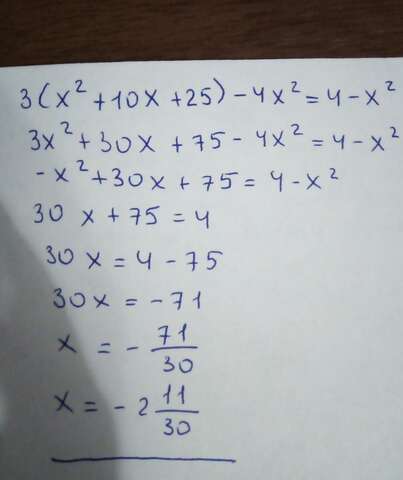 3(x² + 10x + 25) - 4x² = 4 - x²
3x² + 30x + 75 - 4x² = 4 - x²
-x² + 30x + 75 = 4 - x²
30 x + 75 = 4
30 x = 4 - 75
30x = -71
x = - 71/30
x = - 2 11/30